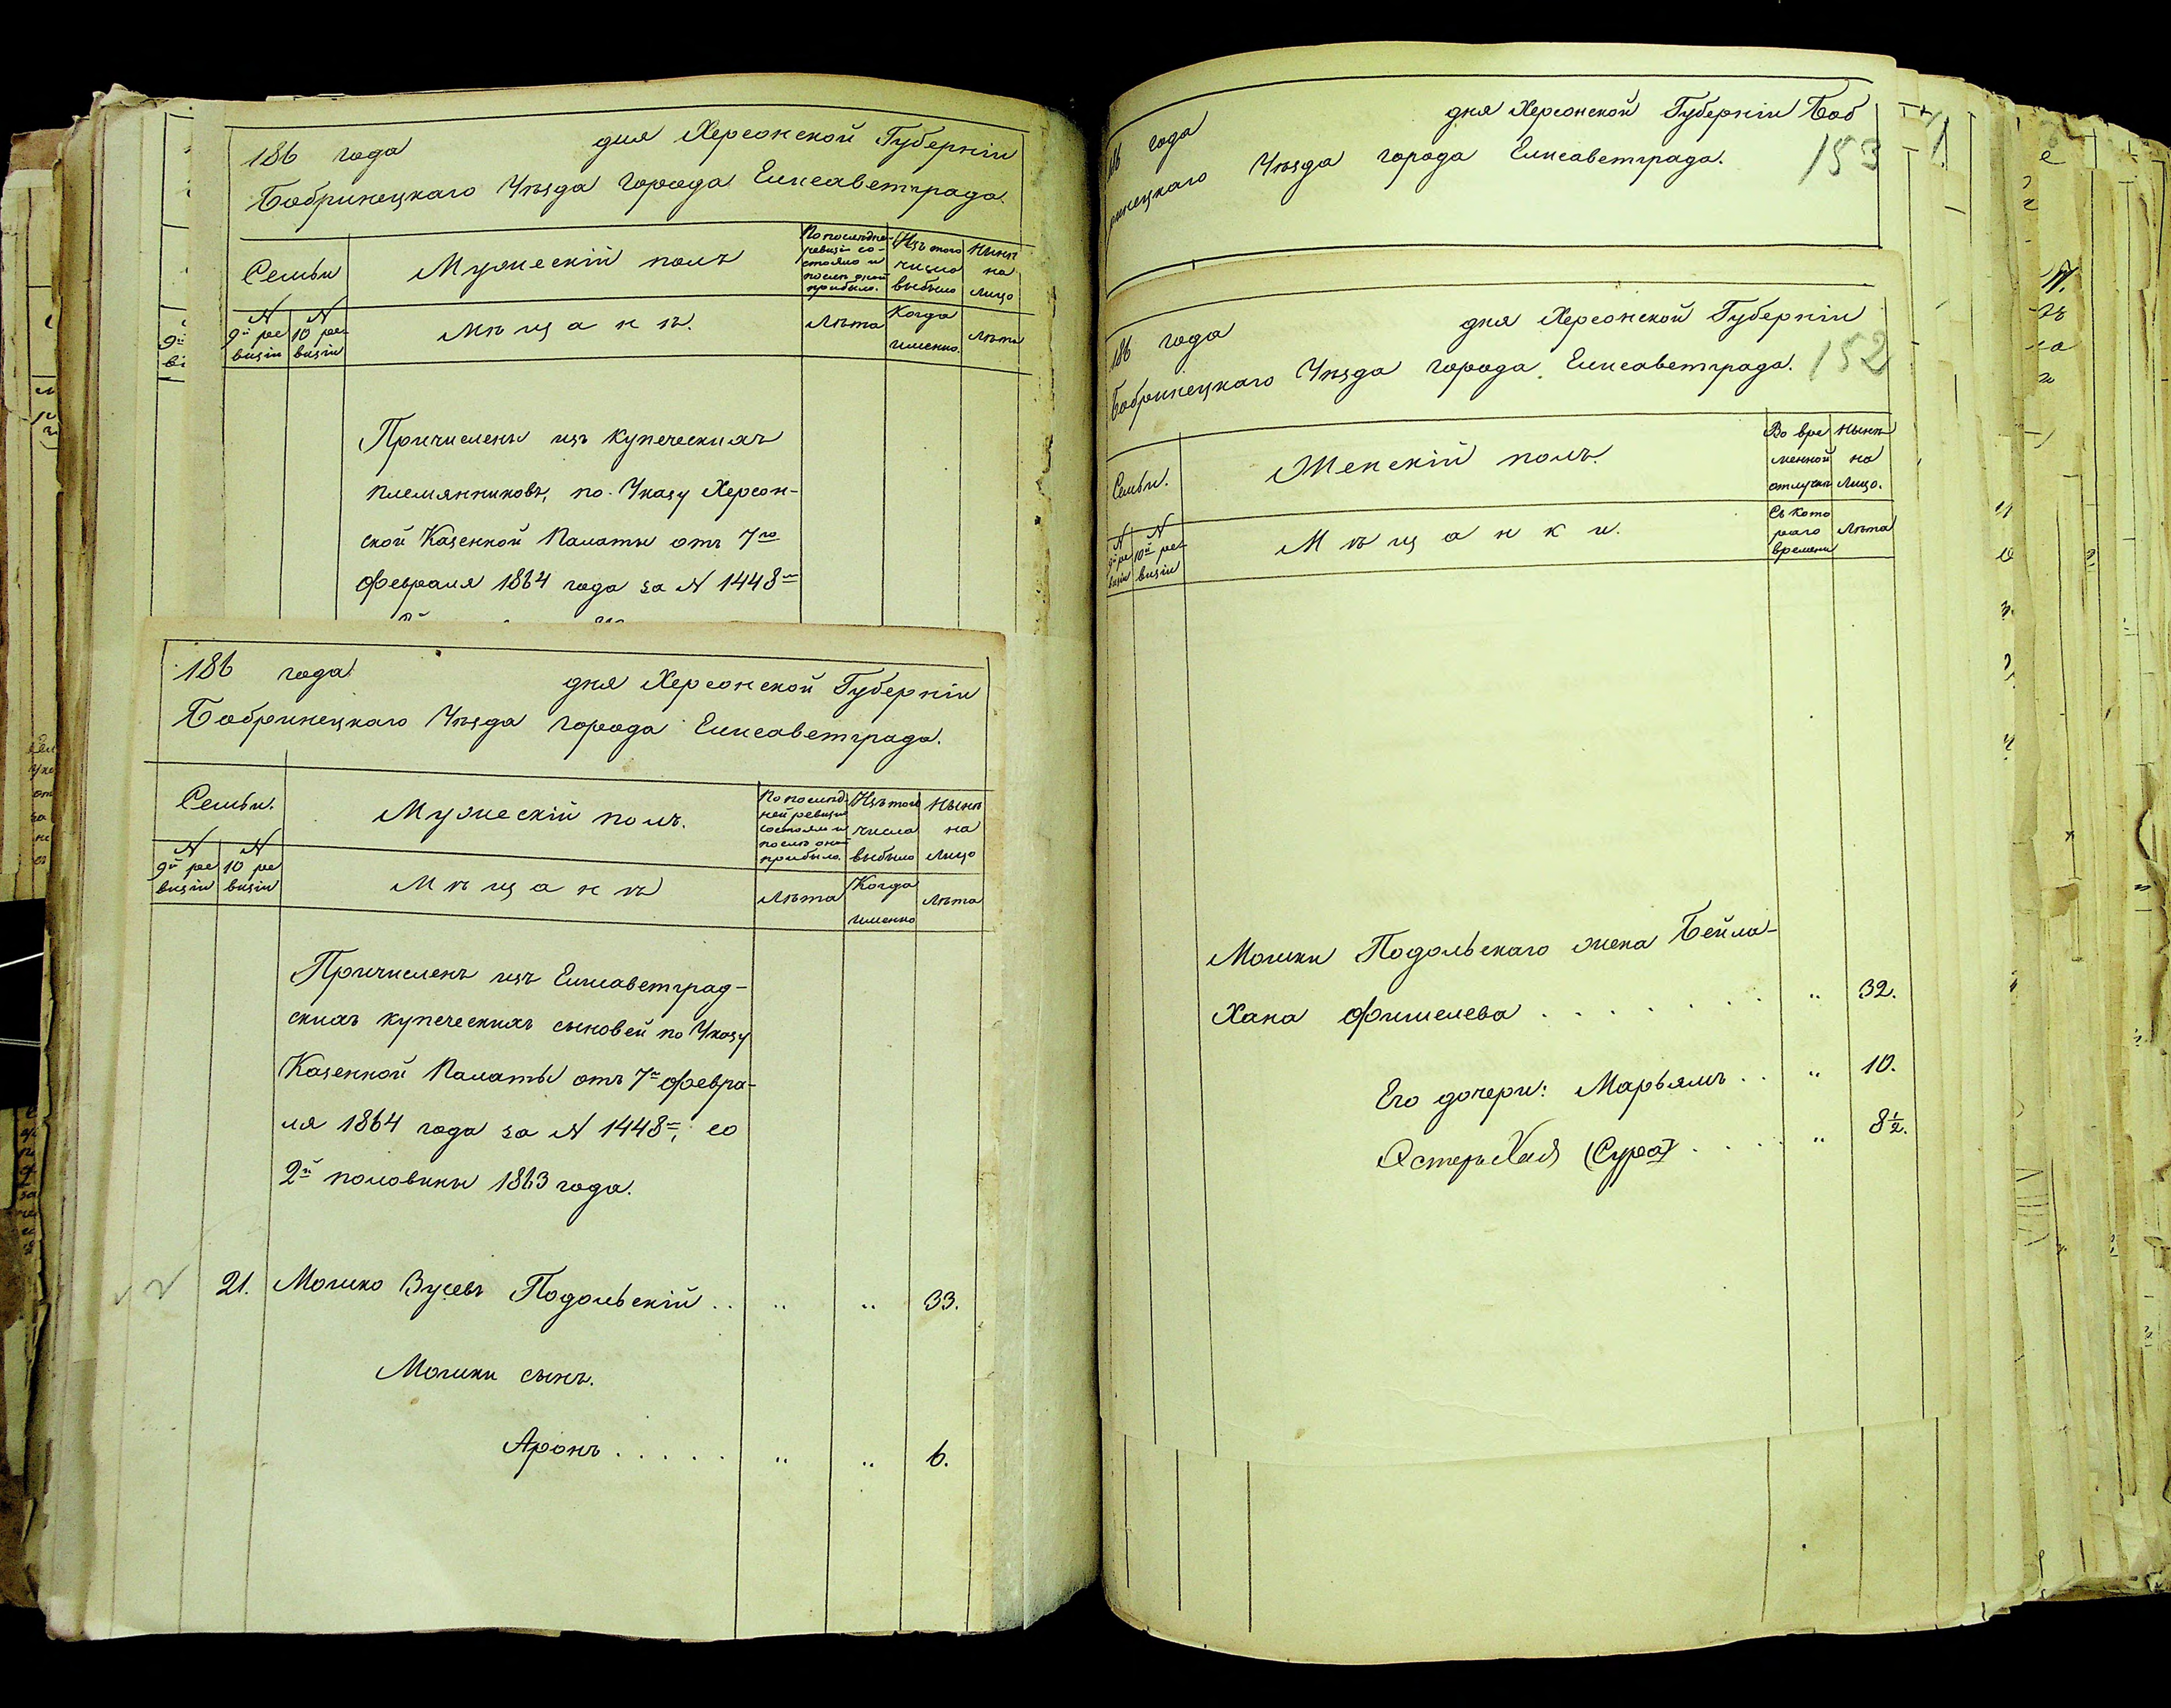 186 года дня Херсонской Губерніи
Бобринецкаго Уѣзда города Елисаветграда.
Семьи
Мужескій полъ
По послѣдней ревизіи состояло и послѣ оной прибыло.
Изъ того числа выбыло
Нынѣ на лицо
N 9й ревизіи
N 10 ревизіи
Мѣщанѣ.
Лѣта
Когда именно.
Лѣта
Причислены изъ купеческихъ
племянниковъ, по Указу Херсон-
ской Казенной Палаты отъ 7го
Февраля 1864 года за N 1448м
186 года дня Херсонской Губерніи
Бобринецкаго Уѣзда города Елисаветграда.
Семьи.
Мужескій полъ.
По послѣдней ревизіи состояло и послѣ оной прибыло.
Изъ того числа выбыло
Нынѣ на лицо
N 9й ревизіи
N 10 ревизіи
Мѣщанѣ
Лѣта
Когда именно
Лѣта
Причисленъ изъ Елисаветград-
скихъ купеческихъ сыновей по Указу
Казенной Палаты отъ 7го Февра-
ля 1864 года за N 1448м, со
2й половины 1863 года.
21. Мошко Зусевъ Подольскій . . " " 33.
Мошки сынъ.
Аронъ . . . . . " " 6.
186 года дня Херсонской Губерніи Боб
ринецкаго Уѣзда города Елисаветграда.
153
186 года дня Херсонской Губерніи
Бобринецкаго Уѣзда города Елисаветграда.
152
Семьи.
Женскій полъ.
Во временной отлучкѣ
Нынѣ на лицо.
N 9й ревизіи
N 10й ревизіи
Мѣщанки.
Съ котораго времени
Лѣта
Мошки Подольскаго жена Бейла-
Хана Фишелева . . . . . . . " 32.
Его дочери: Марьямъ . . " 10.
Эстеръ Хая (Сура) . . . . " 8 1/2.